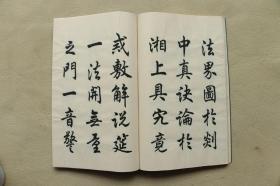 法界圖於剡
中真诀論於
湘上具究竟
或敷解说筵
一法開無量
之門一音警